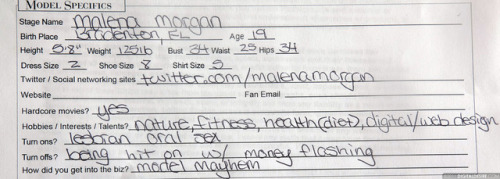 MODEL SPECIFICS
Stage Name malena morgan
Birth Place Bradenton, FL Age 19
Height 5'8" Weight 125lb Bust 34 Waist 25 Hips 34
Dress Size 2 Shoe Size 8 Shirt Size S
Twitter / Social networking sites twitter.com/malenamorgan
Website Fan Email
Hardcore movies? yes
Hobbies / Interests / Talents? nature, fitness, health(diet), digital/web design
Turn ons? lesbian oral sex
Turn offs? being hit on w/ money flashing
How did you get into the biz? model mayhem